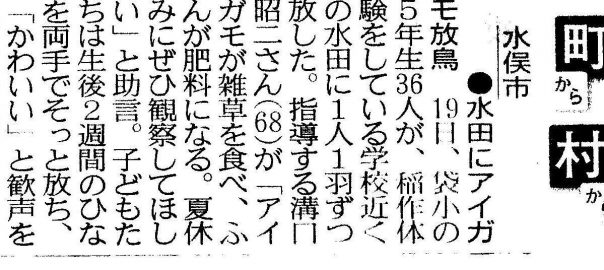 町から
村から
水俣市
●水田にアイガ
モ放鳥　19日、袋小の
5年生36人が、稲作体
験をしている学校近く
の水田に1人1羽ずつ
放した。指導する溝口
昭二さん(68)が「アイ
ガモが雑草を食べ、ふ
んが肥料になる。夏休
みにぜひ観察してほし
い」と助言。子どもた
ちは生後2週間のひな
を両手でそっと放ち、
「かわいい」と歓声を